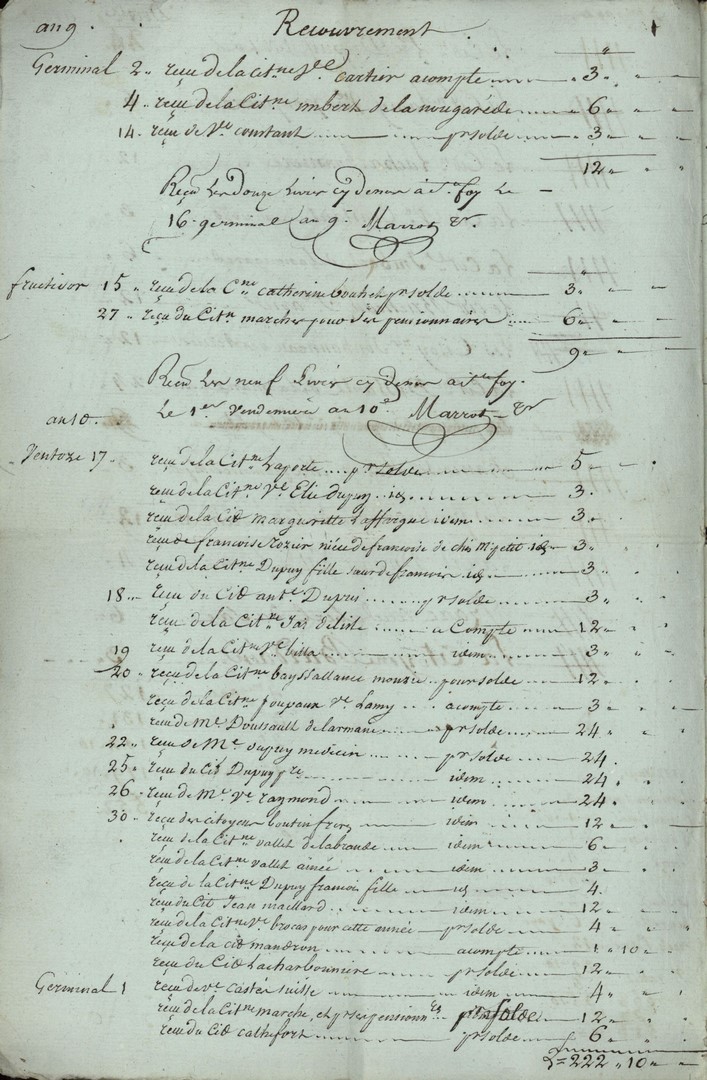 an 9. Recouvrement 1
Germinal 2 .. reçu de la cit.ne v.ve cartier acompte 3 "
4 .. reçu de la Cit.ne imbert de la nougarède 6 "
14 .. reçu de V.ve constant pr solde 3 "
12 "
Reçu les douze livres cy dessus a S.te foy Le
16 germinal an 9. Marrot
fructidor 15 " reçu de la C.ne catherine bouhet pr solde 3 "
27 " reçu du Cit.n marche pour ses pensionnaires 6 "
9 "
Reçu les neuf Livres cy dessus a S.te foy.
Le 1er Vendemiaire an 10e Marrot
an 10.
Ventoze 17 . reçu de la Cit.ne Laporte pr solde 5 "
reçu de la Cit.ne V.e Elie Dupuy id 3 .
reçu de la Cit.e Margueritte Laffrique idem 3 .
reçu de francoise rozier niéce de francoise de chés Mr petit id 3 "
reçu de la Cit.ne Dupuy fille sœur de francois id 3 "
18 .. reçu du Cit.e ant.e Dupuis pr solde 3 "
reçu de la Cit.ne de lisle a Compte 12 "
19 reçu de la Cit.ne V.e billa idem 3 "
20 . reçu de la Cit.ne bayssallance pour solde 12 "
reçu de la Cit.ne poupaux V.e Lamy acompte 3 "
reçu de Me Doussault de larmane pr solde 24 "
22 .. reçu de Mr dupuy medecin pr solde 24 .
25 " reçu du Cit Dupuy idem 24 "
26 . reçu de Me V.e raymond idem 24 "
30 . reçu des citoyens boutin freres idem 12 "
reçu de la Cit.ne vallet de labraude idem 6 "
reçu de la Cit.ne vallet ainée idem 3 "
reçu de la Cit.ne Dupuy francois fille id 4 .
reçu du Cit Jean maillard idem 12 "
reçu de la Cit.ne V.e brocas pour cette année pr solde 4 "
reçu de la cit.e mandron acompte 1 " 10 "
reçu du Cit.e Lacharbonniere pr solde 12 "
Germinal 1 reçu de v.e castér suisse idem 4 "
reçu de la Cit.ne marche, et pr ses pensionn.es pr solde 12 "
reçu du Cit.e cathefort pr solde 6 "
222 " 10 "